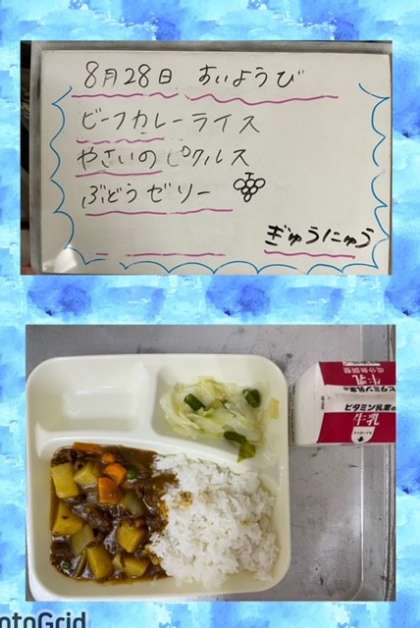 8月28日 すいようび
ビーフカレーライス
やさいのピクルス
ぶどうゼリー
ぎゅうにゅう
牛乳
ビタミン乳業の
牛乳
otoGrid